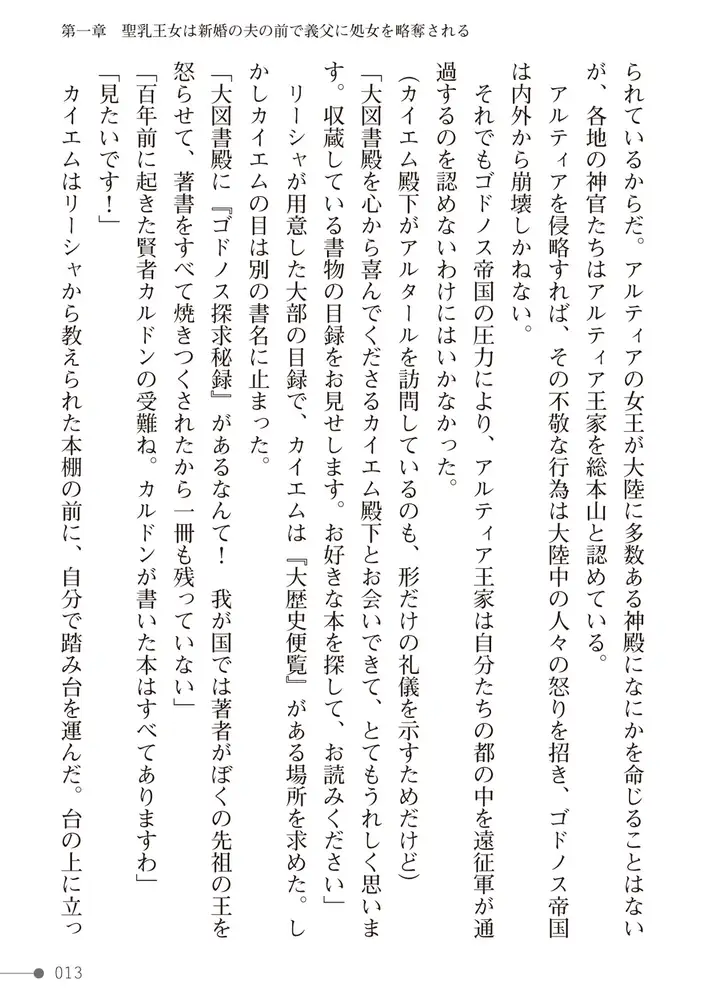 第一章　聖乳王女は新婚の夫の前で義父に処女を略奪される
られているからだ。アルティアの女王が大陸に多数ある神殿になにかを命じることはない
が、各地の神官たちはアルティア王家を総本山と認めている。
　アルティアを侵略すれば、その不敬な行為は大陸中の人々の怒りを招き、ゴドノス帝国
は内外から崩壊しかねない。
　それでもゴドノス帝国の圧力により、アルティア王家は自分たちの都の中を遠征軍が通
過するのを認めないわけにはいかなかった。
（カイエム殿下がアルタールを訪問しているのも、形だけの礼儀を示すためだけど）
「大図書殿を心から喜んでくださるカイエム殿下とお会いできて、とてもうれしく思いま
す。収蔵している書物の目録をお見せします。お好きな本を探して、お読みください」
　リーシャが用意した大部の目録で、カイエムは『大歴史便覧』がある場所を求めた。し
かしカイエムの目は別の書名に止まった。
「大図書殿に『ゴドノス探求秘録』があるなんて！　我が国では著者がぼくの先祖の王を
怒らせて、著書をすべて焼きつくされたから一冊も残っていない」
「百年前に起きた賢者カルドンの受難ね。カルドンが書いた本はすべてありますわ」
「見たいです！」
　カイエムはリーシャから教えられた本棚の前に、自分で踏み台を運んだ。台の上に立っ
013